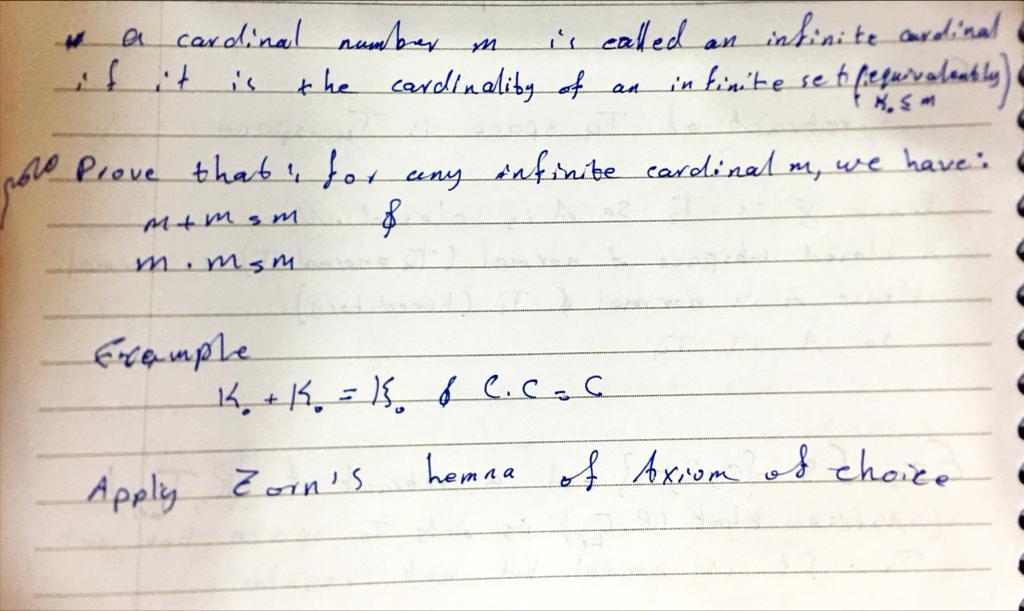 a cardinal number m is called an infinite cardinal
if it is the cardinality of an infinite set (equivalently)
ℵ₀ ≤ m
Prove that: for any infinite cardinal m, we have:
m + m = m &
m . m = m
Example
ℵ₀ + ℵ₀ = ℵ₀ & C.C = C
Apply Zorn's hemna of Axiom of choice